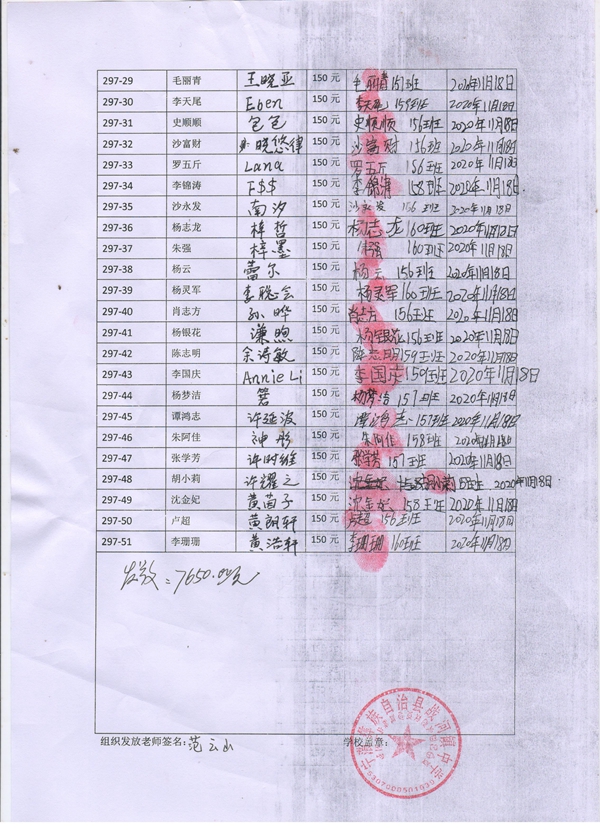 297-29 毛丽青 王晓亚 150 元 毛丽青 157班 2020年11月18日
297-30 李天尾 Eben 150 元 李天尾 159班 2020年11月18日
297-31 史顺顺 包包 150 元 史顺顺 156班 2020年11月18日
297-32 沙富财 晓悠律 150 元 沙富财 156班 2020年11月18日
297-33 罗五斤 Lana 150 元 罗五斤 156班 2020年11月18日
297-34 李锦涛 F$$ 150 元 李锦涛 158班 2020年11月18日
297-35 沙永发 南汐 150 元 沙永发 156班 2020年11月18日
297-36 杨志龙 梓哲 150 元 杨志龙 160班 2020年11月18日
297-37 朱强 梓墨 150 元 朱强 160班 2020年11月18日
297-38 杨云 蕾尔 150 元 杨云 156班 2020年11月18日
297-39 杨灵军 李聪会 150 元 杨灵军 160班 2020年11月18日
297-40 肖志方 孙晔 150 元 肖志方 156班 2020年11月18日
297-41 杨银花 濂煦 150 元 杨银花 156班 2020年11月18日
297-42 陈志明 余涛敏 150 元 陈志明 159班 2020年11月18日
297-43 李国庆 Annie Li 150 元 李国庆 159班 2020年11月18日
297-44 杨梦洁 150 元 杨梦洁 157班 2020年11月18日
297-45 谭鸿志 许延波 150 元 谭鸿志 157班 2020年11月18日
297-46 朱阿佳 钟彤 150 元 朱阿佳 158班 2020年11月18日
297-47 张学芳 许时维 150 元 张学芳 157班 2020年11月18日
297-48 胡小莉 许耀之 150 元 沈金妃 胡小莉 158班 2020年11月18日
297-49 沈金妃 黄茵子 150 元 沈金妃 158班 2020年11月18日
297-50 卢超 黄朗轩 150 元 卢超 156班 2020年11月18日
297-51 李珊珊 黄浩轩 150 元 李珊珊 160班 2020年11月18日
发放：7650.00元
组织发放老师签名：范云山 学校盖章：
宁蒗彝族自治县战河镇中学